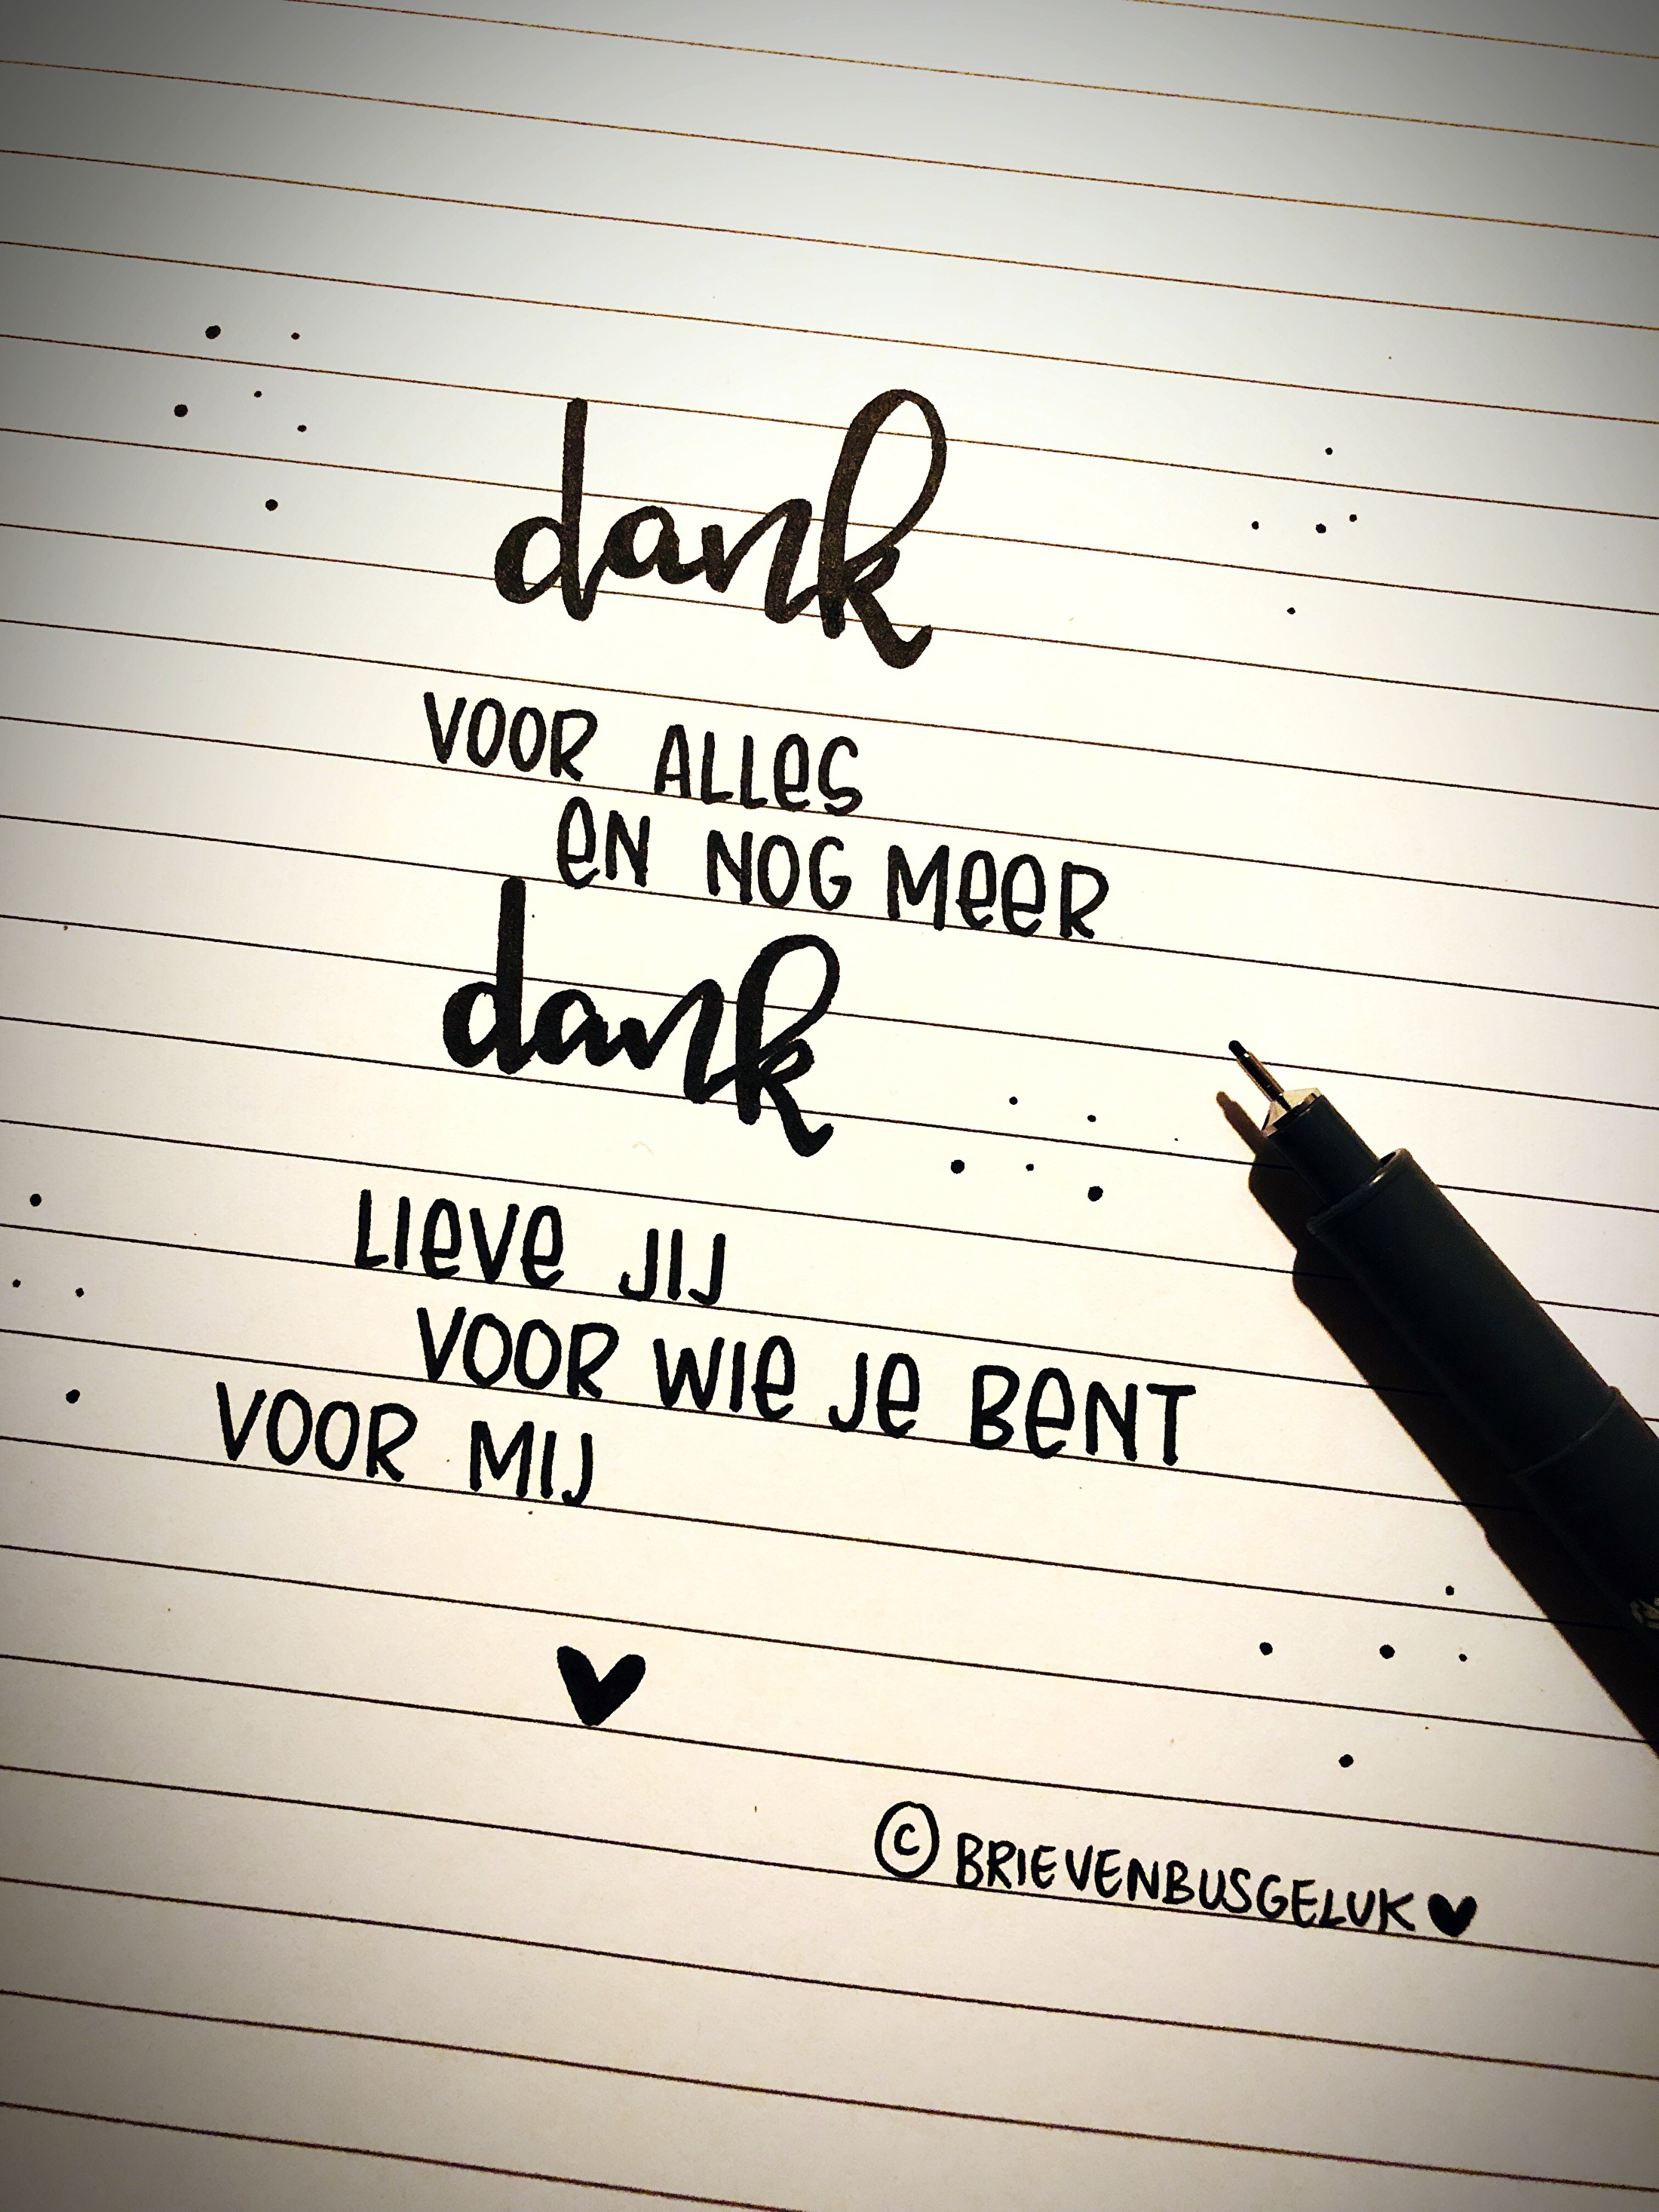 dank
VOOR ALLES
EN NOG MEER
dank
LIEVE JIJ
VOOR WIE JE BENT
VOOR MIJ
♥
© BRIEVENBUSGELUK ♥